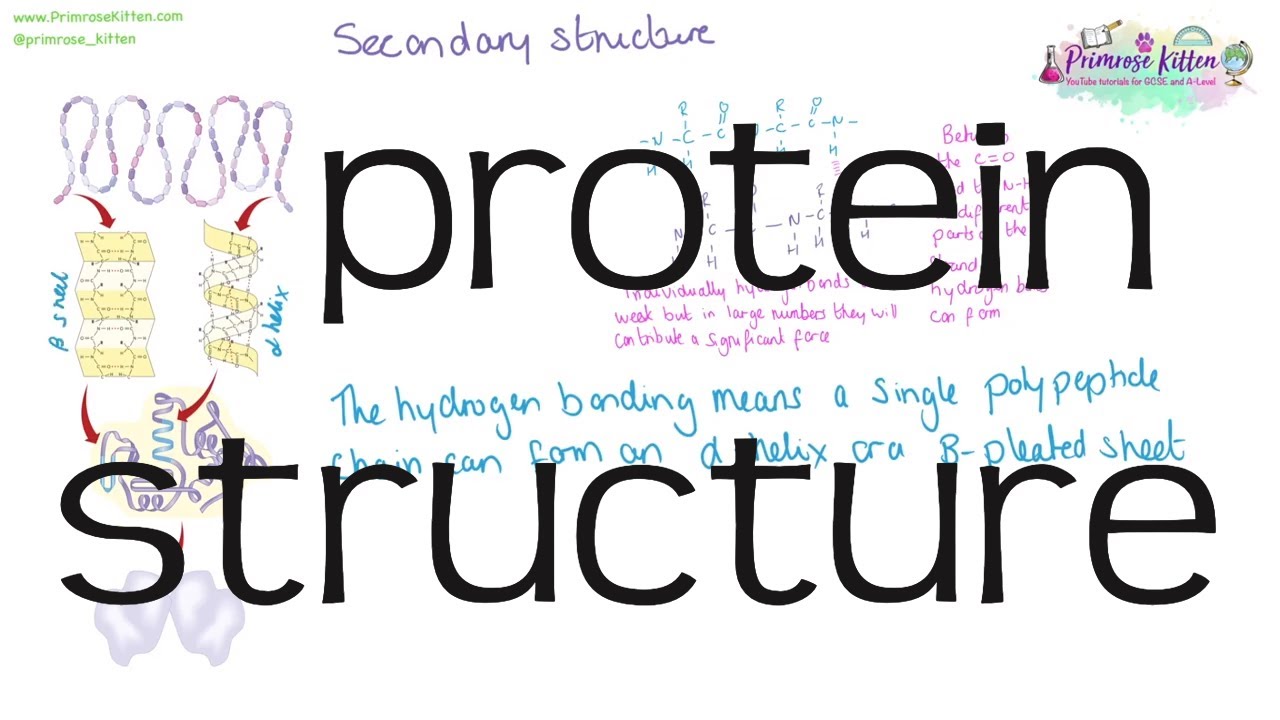 www.PrimroseKitten.com
@primrose_kitten
Secondary structure
Primrose Kitten
YouTube tutorials for GCSE and A-Level
protein
structure
the C=O
N-H
different
parts of the
hydrogen
can form
Individually hydrogen bonds
weak but in large numbers they will
contribute a significant force
β sheet
α helix
The hydrogen bonding means a single polypeptide
chain can form an α helix or a B-pleated sheet